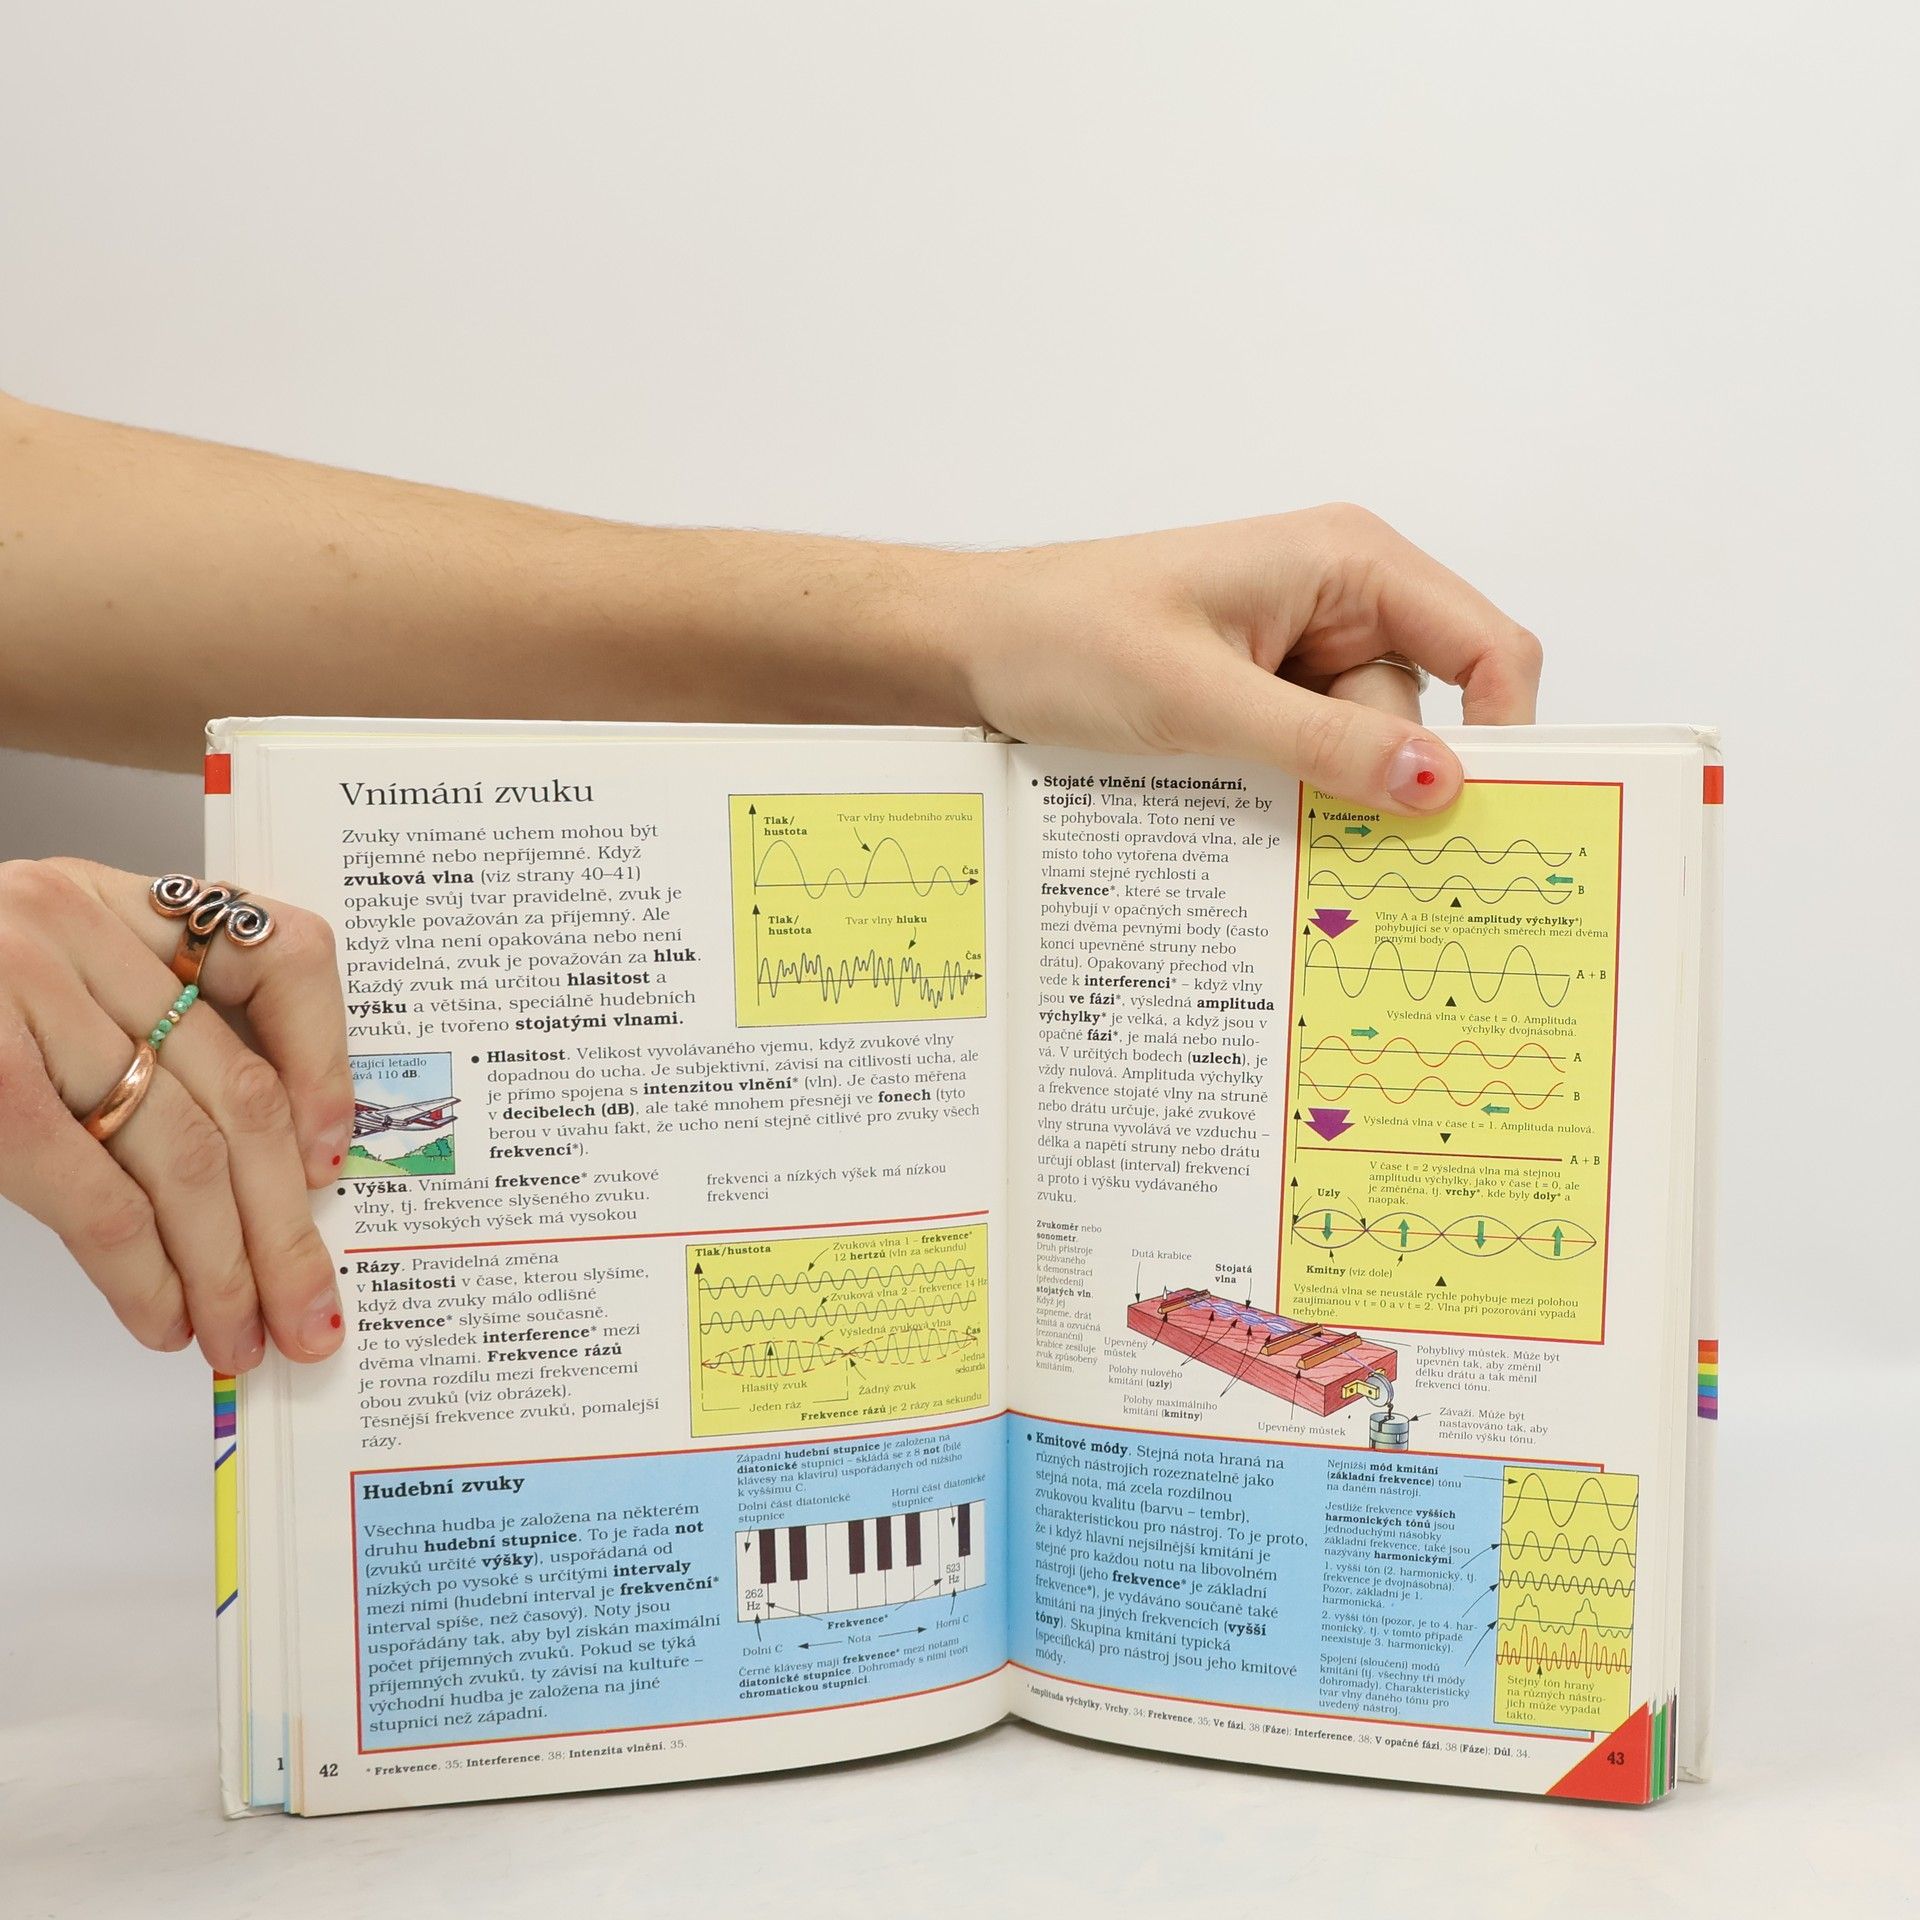 Vnímání zvuku
Zvuky vnímané uchem mohou být
příjemné nebo nepříjemné. Když
zvuková vlna (viz strany 40–41)
opakuje svůj tvar pravidelně, zvuk je
obvykle považován za příjemný. Ale
když vlna není opakována nebo není
pravidelná, zvuk je považován za hluk.
Každý zvuk má určitou hlasitost a
výšku a většina, speciálně hudebních
zvuků, je tvořeno stojatými vlnami.
Tlak/
hustota
Tvar vlny hudebního zvuku
Čas
Tlak/
hustota
Tvar vlny hluku
Čas
letadlo
110 dB.
• Hlasitost. Velikost vyvolávaného vjemu, když zvukové vlny
dopadnou do ucha. Je subjektivní, závisí na citlivosti ucha, ale
je přímo spojena s intenzitou vlnění* (vln). Je často měřena
v decibelech (dB), ale také mnohem přesněji ve fonech (tyto
berou v úvahu fakt, že ucho není stejně citlivé pro zvuky všech
frekvencí*).
• Výška. Vnímání frekvence* zvukové
vlny, tj. frekvence slyšeného zvuku.
Zvuk vysokých výšek má vysokou
frekvenci a nízkých výšek má nízkou
frekvenci
• Rázy. Pravidelná změna
v hlasitosti v čase, kterou slyšíme,
když dva zvuky málo odlišné
frekvence* slyšíme současně.
Je to výsledek interference* mezi
dvěma vlnami. Frekvence rázů
je rovna rozdílu mezi frekvencemi
obou zvuků (viz obrázek).
Těsnější frekvence zvuků, pomalejší
rázy.
Tlak/hustota
Zvuková vlna 1 – frekvence*
12 hertzů (vln za sekundu)
Zvuková vlna 2 – frekvence 14 Hz
Výsledná zvuková vlna
Čas
Jedna
sekunda
Hlasitý zvuk
Žádný zvuk
Jeden ráz
Frekvence rázů je 2 rázy za sekundu
Hudební zvuky
Všechna hudba je založena na některém
druhu hudební stupnice. To je řada not
(zvuků určité výšky), uspořádaná od
nízkých po vysoké s určitými intervaly
mezi nimi (hudební interval je frekvenční*
interval spíše, než časový). Noty jsou
uspořádány tak, aby byl získán maximální
počet příjemných zvuků. Pokud se týká
příjemných zvuků, ty závisí na kultuře –
východní hudba je založena na jiné
stupnici než západní.
Západní hudební stupnice je založena na
diatonické stupnici – skládá se z 8 not (bílé
klávesy na klavíru) uspořádaných od nižšího
k vyššímu C.
Dolní část diatonické
stupnice
Horní část diatonické
stupnice
262
Hz
523
Hz
Frekvence*
Dolní C
Nota
Horní C
Černé klávesy mají frekvence* mezi notami
diatonické stupnice. Dohromady s nimi tvoří
chromatickou stupnici.
1
42
* Frekvence, 35; Interference, 38; Intenzita vlnění, 35.
• Stojaté vlnění (stacionární,
stojící). Vlna, která nejeví, že by
se pohybovala. Toto není ve
skutečnosti opravdová vlna, ale je
místo toho vytořena dvěma
vlnami stejné rychlosti a
frekvence*, které se trvale
pohybují v opačných směrech
mezi dvěma pevnými body (často
konci upevněné struny nebo
drátu). Opakovaný přechod vln
vede k interferenci* – když vlny
jsou ve fázi*, výsledná amplituda
výchylky* je velká, a když jsou v
opačné fázi*, je malá nebo nulo-
vá. V určitých bodech (uzlech), je
vždy nulová. Amplituda výchylky
a frekvence stojaté vlny na struně
nebo drátu určuje, jaké zvukové
vlny struna vyvolává ve vzduchu –
délka a napětí struny nebo drátu
určují oblast (interval) frekvencí
a proto i výšku vydávaného
zvuku.
Vzdálenost
A
B
Vlny A a B (stejné amplitudy výchylky*)
pohybující se v opačných směrech mezi dvěma
pevnými body.
A + B
Výsledná vlna v čase t = 0. Amplituda
výchylky dvojnásobná.
A
B
Výsledná vlna v čase t = 1. Amplituda nulová.
A + B
V čase t = 2 výsledná vlna má stejnou
amplitudu výchylky, jako v čase t = 0, ale
je změněna, tj. vrchy*, kde byly doly* a
naopak.
Uzly
Kmitny (viz dole)
Výsledná vlna se neustále rychle pohybuje mezi polohou
zaujímanou v t = 0 a v t = 2. Vlna při pozorování vypadá
nehybně.
Zvukoměr nebo
sonometr.
Druh přístroje
používaného
k demonstraci
(předvedení)
stojatých vln.
Když jej
zapneme, drát
kmitá a ozvučná
(rezonanční)
krabice zesiluje
zvuk způsobený
kmitáním.
Dutá krabice
Stojatá
vlna
Upevněný
můstek
Polohy nulového
kmitání (uzly)
Polohy maximálního
kmitání (kmitny)
Upevněný můstek
Pohyblivý můstek. Může být
upevněn tak, aby změnil
délku drátu a tak měnil
frekvenci tónu.
Závaží. Může být
nastavováno tak, aby
měnilo výšku tónu.
• Kmitové módy. Stejná nota hraná na
různých nástrojích rozeznatelně jako
stejná nota, má zcela rozdílnou
zvukovou kvalitu (barvu – tembr),
charakteristickou pro nástroj. To je proto,
že i když hlavní nejsilnější kmitání je
stejné pro každou notu na libovolném
nástroji (jeho frekvence* je základní
frekvence*), je vydáváno součaně také
kmitání na jiných frekvencích (vyšší
tóny). Skupina kmitání typická
(specifická) pro nástroj jsou jeho kmitové
módy.
Nejnižší mód kmitání
(základní frekvence) tónu
na daném nástroji.
Jestliže frekvence vyšších
harmonických tónů jsou
jednoduchými násobky
základní frekvence, také jsou
nazývány harmonickými.
1. vyšší tón (2. harmonický, tj.
frekvence je dvojnásobná).
Pozor, základní je 1.
harmonická.
2. vyšší tón (pozor, je to 4. har-
monický, tj. v tomto případě
neexistuje 3. harmonický).
Spojení (sloučení) modů
kmitání (tj. všechny tři módy
dohromady). Charakteristický
tvar vlny daného tónu pro
uvedený nástroj.
Stejný tón hraný
na různých nástro-
jích může vypadat
takto.
* Amplituda výchylky, Vrchy, 34; Frekvence, 35; Ve fázi, 38 (Fáze); Interference, 38; V opačné fázi, 38 (Fáze); Důl, 34.
43